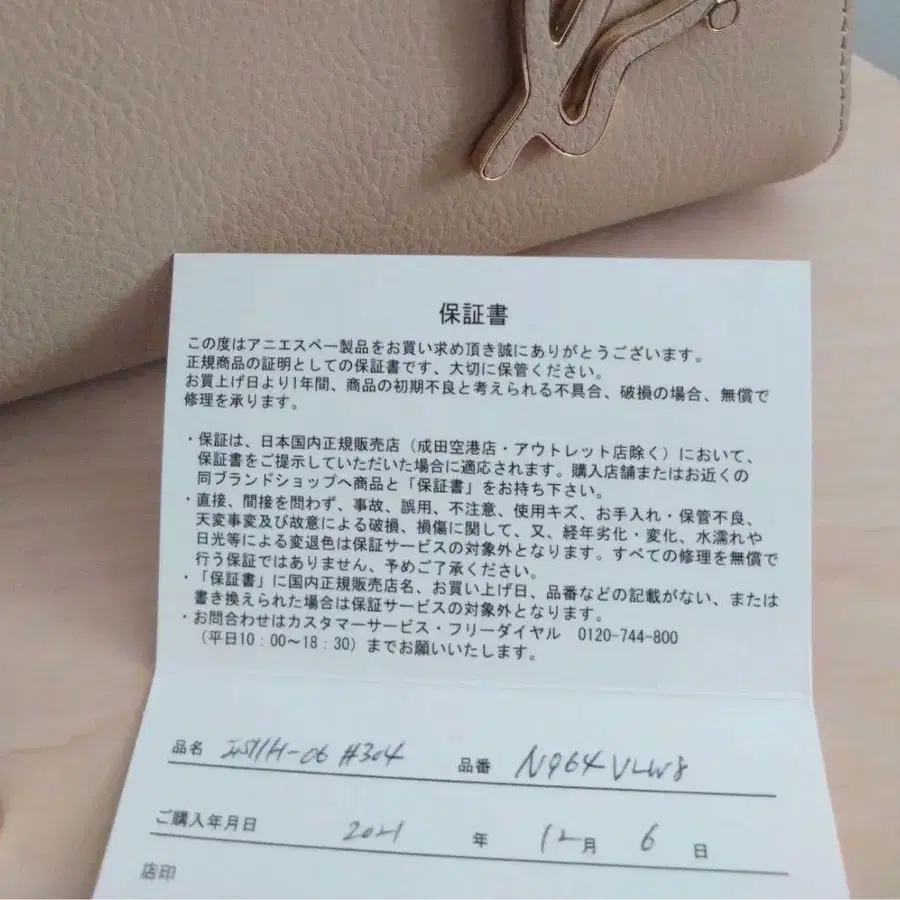 保証書
この度はアニエスベー製品をお買い求め頂き誠にありがとうございます。
正規商品の証明としての保証書です、大切に保管ください。
お買上げ日より1年間、商品の初期不良と考えられる不具合、破損の場合、無償で
修理を承ります。
・保証は、日本国内正規販売店（成田空港店・アウトレット店除く）において、
保証書をご提示していただいた場合に適応されます。購入店舗またはお近くの
同ブランドショップへ商品と「保証書」をお持ち下さい。
・直接、間接を問わず、事故、誤用、不注意、使用キズ、お手入れ・保管不良、
天変事変及び故意による破損、損傷に関して、又、経年劣化・変化、水濡れや
日光等による変退色は保証サービスの対象外となります。すべての修理を無償で
行う保証ではありません、予めご了承ください。
・「保証書」に国内正規販売店名、お買い上げ日、品番などの記載がない、または
書き換えられた場合は保証サービスの対象外となります。
・お問合わせはカスタマーサービス・フリーダイヤル 0120-744-800
（平日10：00〜18：30）までお願いいたします。
品名 #304 品番 N964VLW8
ご購入年月日 2021 年 12月 6 日
店印